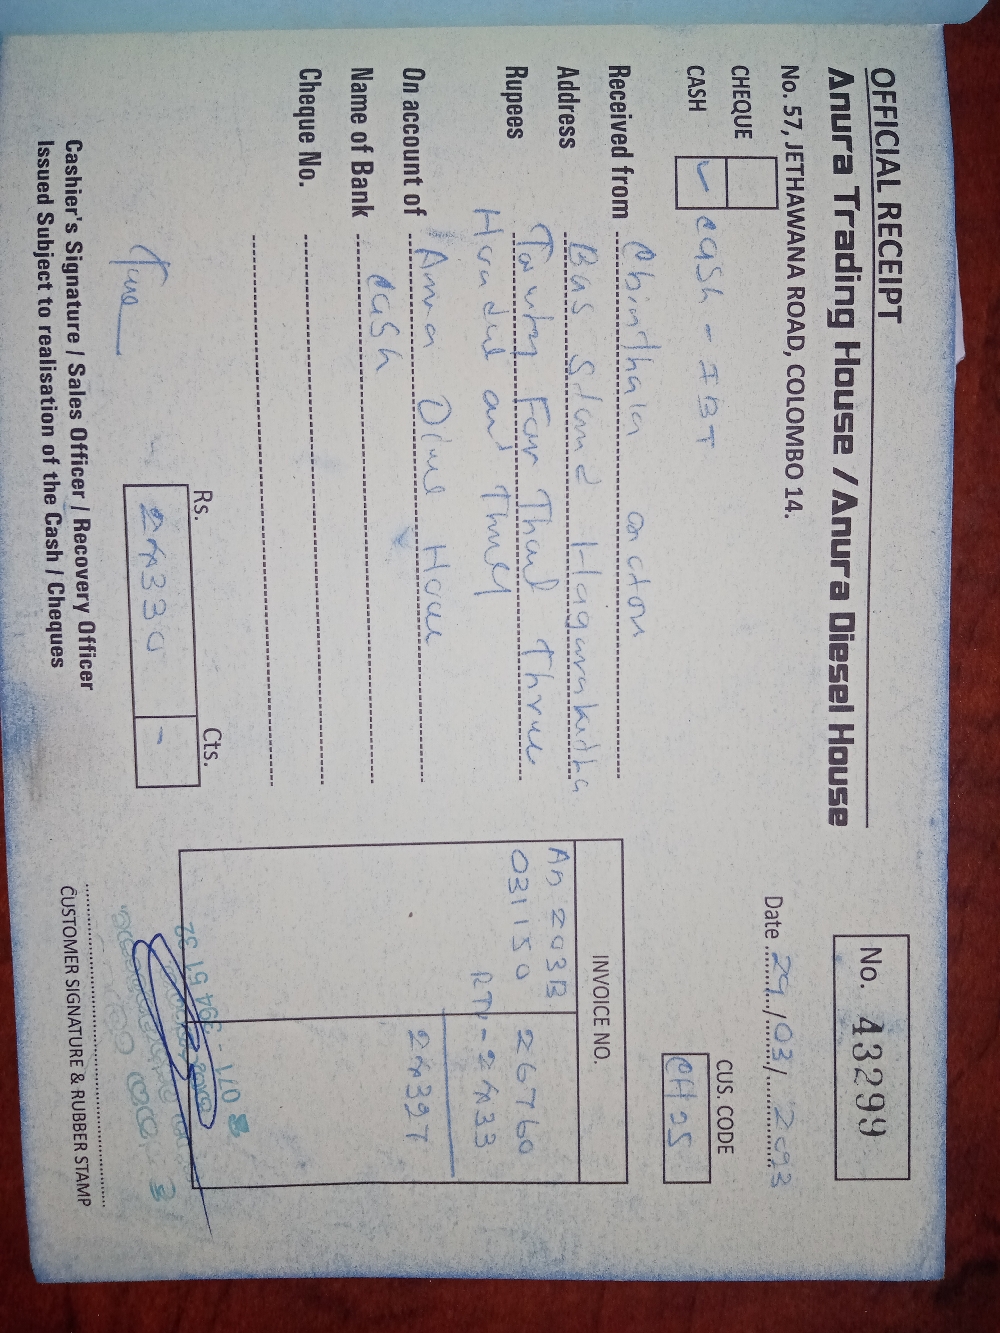 OFFICIAL RECEIPT
Anura Trading House / Anura Diesel House
No. 57, JETHAWANA ROAD, COLOMBO 14.
No. 43299
Date 29/03/2023
CHEQUE
CASH ✓ cash - IBT
CUS. CODE
CH25
Received from Chinthaka
Address Bus Stand Haggarakitha
Rupees Twenty Four Thousand Three
Hundred and Thirty
On account of Anura Diesel House
Name of Bank cash
Cheque No.
INVOICE NO.
An 203B
031150 26760
RTN - 2433
24327
Rs. Cts.
24330 -
071 - 394 51 92
Cashier's Signature / Sales Officer / Recovery Officer
Issued Subject to realisation of the Cash / Cheques
CUSTOMER SIGNATURE & RUBBER STAMP